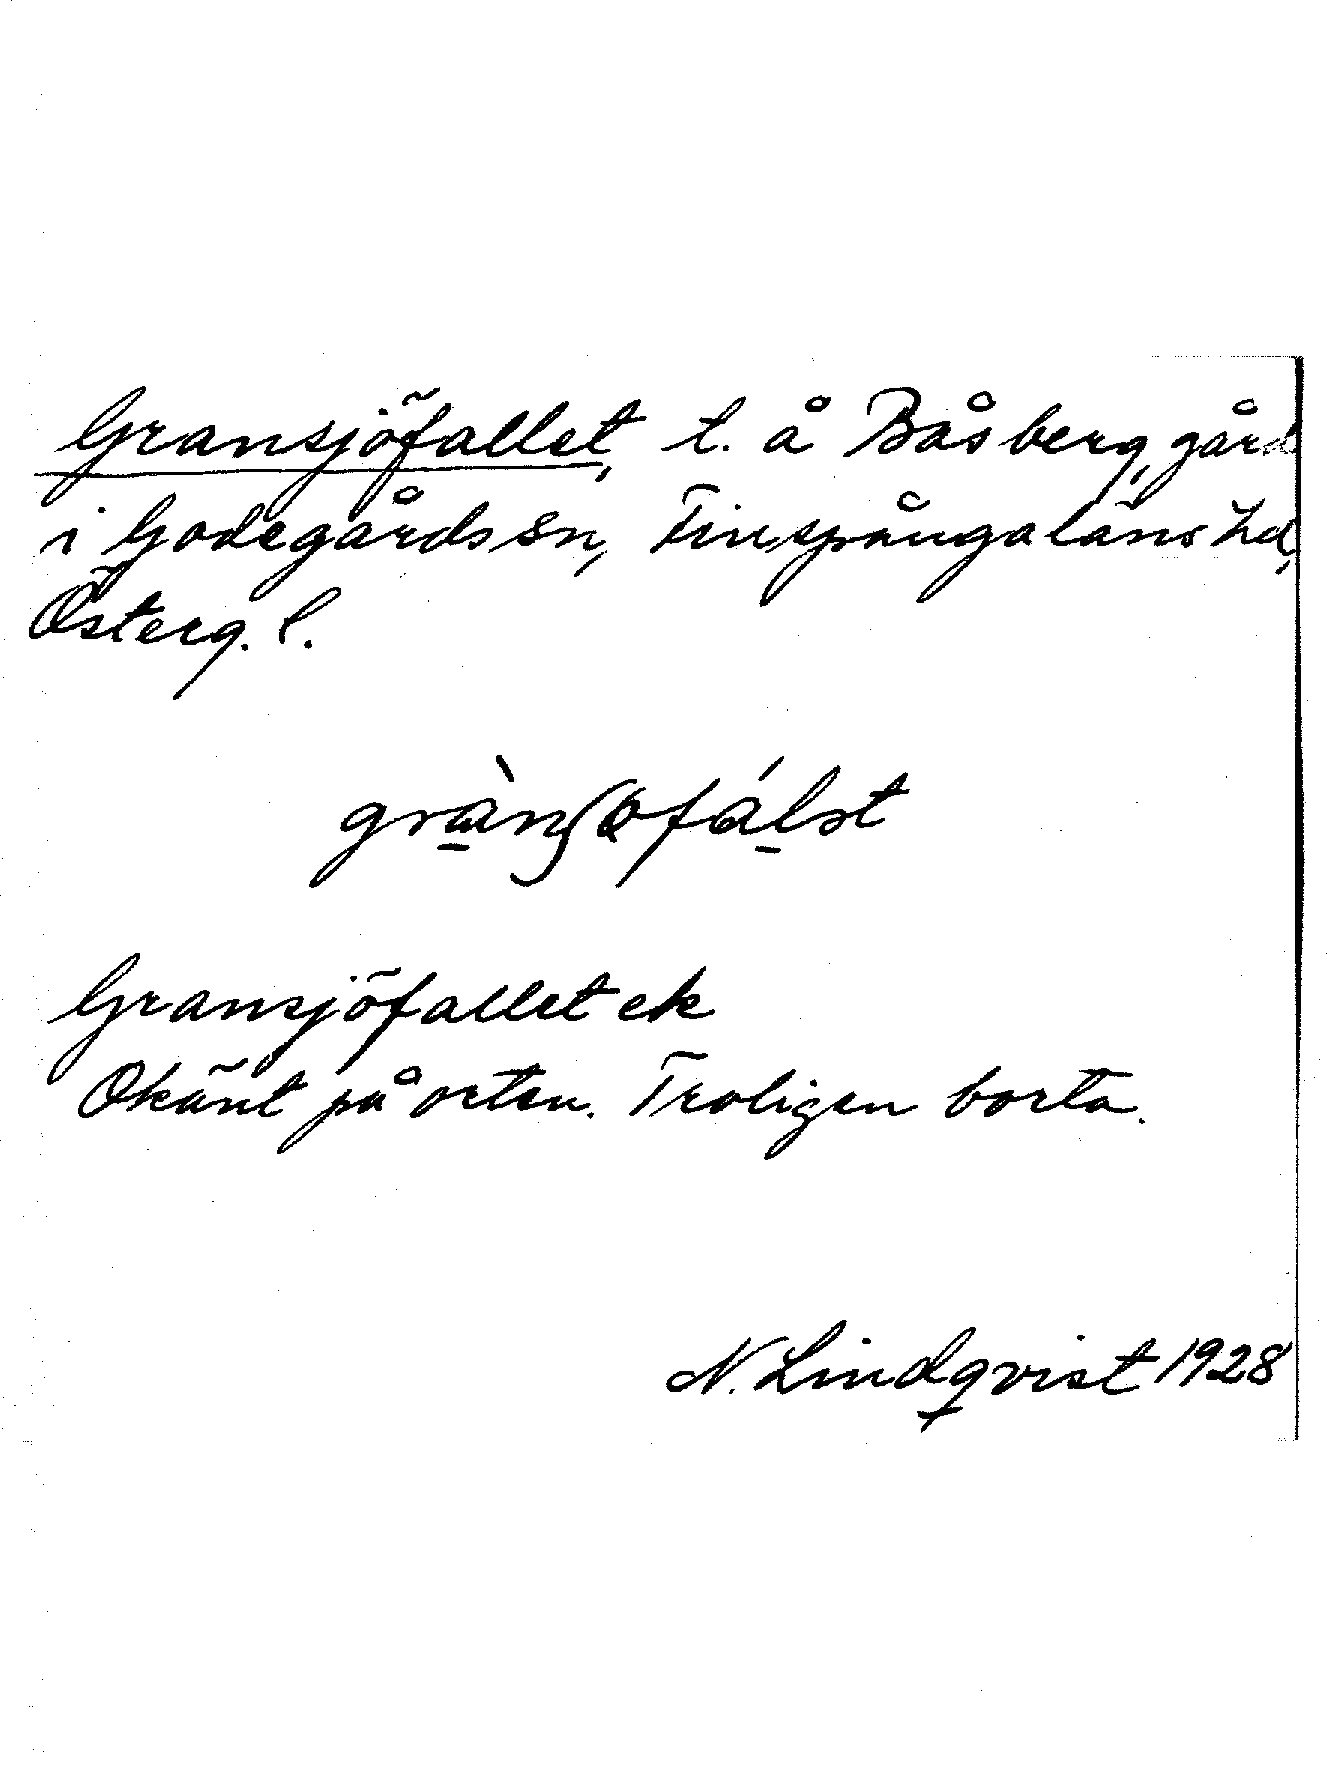 Gransjöfallet, t. å Båsberg, gård
i Godegårds sn, Finspånga läns hd,
Österg. l.
grànʃøfálət
Gransjöfallet ek
Okänt på orten. Troligen borta.
N. Lindqvist 1928